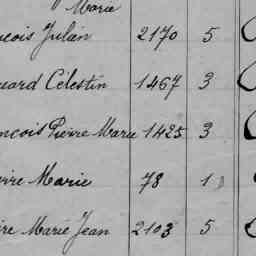 Marie
çois Julien 2170 5
uard Célestin 1467 3
ncois Pierre Marie 1425 3
erre Marie 78 1
re Marie Jean 2103 5